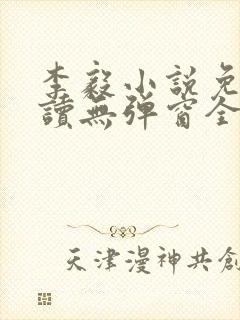 李毅小説免
讀無彈窗全
天津漫神共創